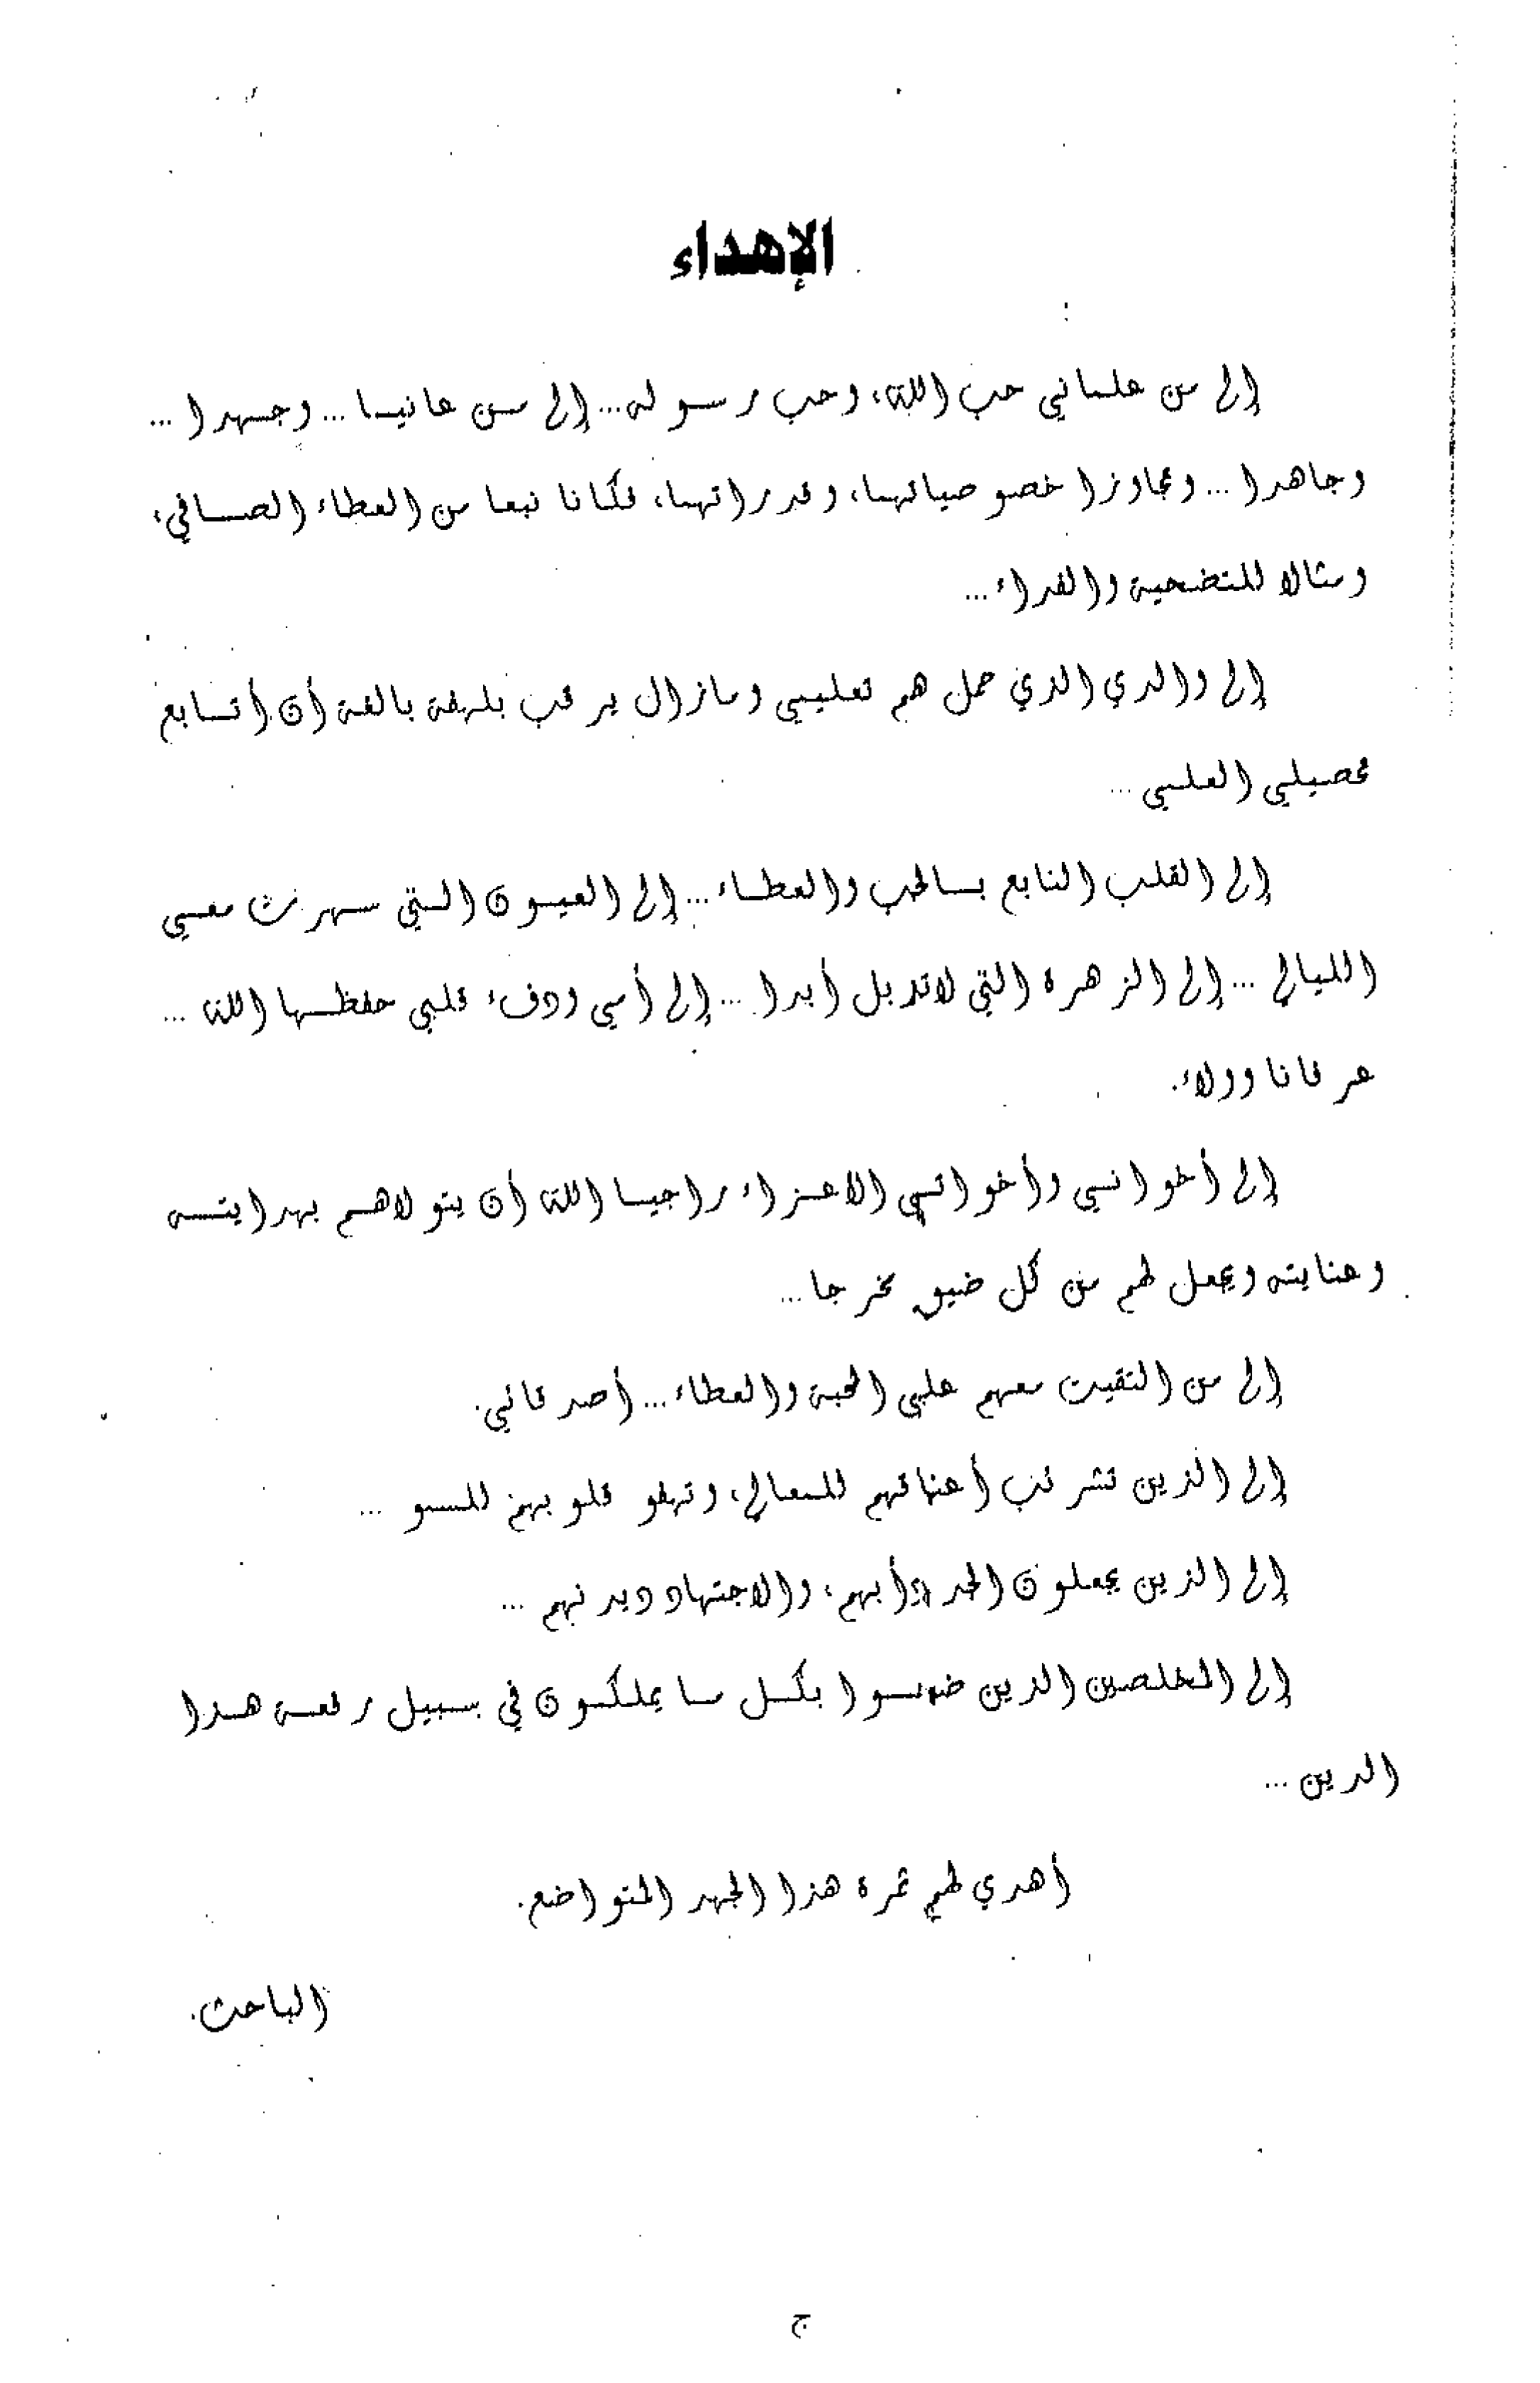 الإهداء
إلى من علماني حب الله، وحب رسوله... إلى من عانيا ... وجهدا ...
وجاهدا ... وتجاوزا خصوصياتهما، وقدراتهما، فكانا نبعا من العطاء الصافي،
ومثالا للتضحية والفداء ...
إلى والدي الذي حمل هم تعليمي ومازال يرقب بلهفة بالغة أن أتابع
تحصيلي العلمي ...
إلى القلب النابع بالحب والعطاء ... إلى العيون التي سهرت معي
الليالي ... إلى الزهرة التي لاتذبل أبدا ... إلى أمي ودفء قلبي حفظها الله ...
عرفانا وولاء.
إلى أخواني وأخواتي الأعزاء راجيا الله أن يتولاهم بهدايته
وعنايته ويجعل لهم من كل ضيق مخرجا ...
إلى من التقيت معهم على المحبة والعطاء ... أصدقائي.
إلى الذين تشرئب أعناقهم للمعالي، وتهفو قلوبهم للسمو ...
إلى الذين يجعلون الجد دأبهم، والاجتهاد ديدنهم ...
إلى المخلصين الذين ضحوا بكل ما يملكون في سبيل رفعة هذا
الدين ...
أهدي لهم ثمرة هذا الجهد المتواضع.
الباحث.
ج